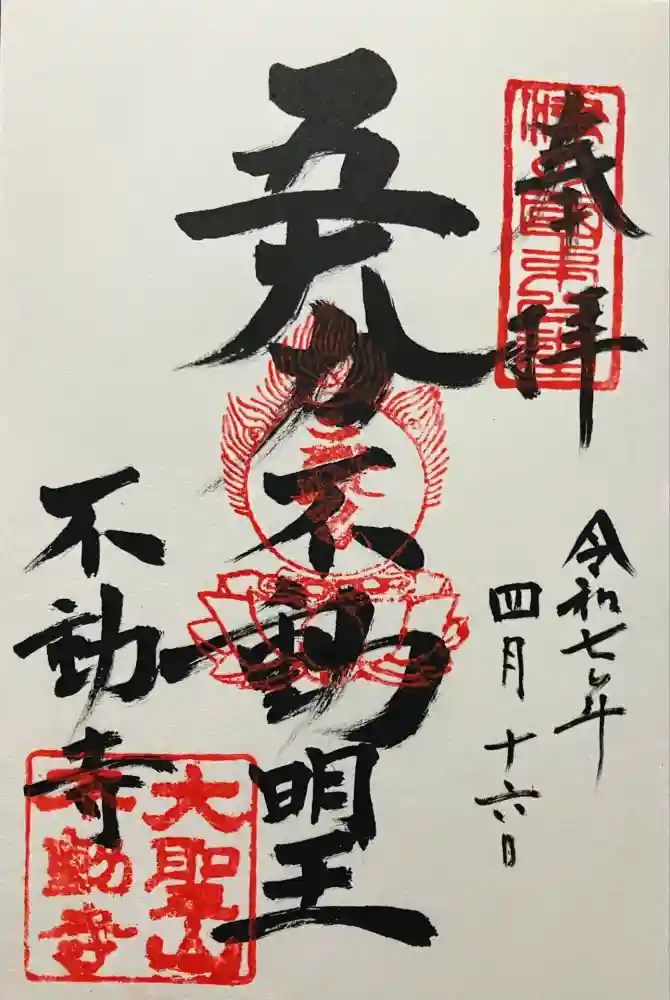 奉拝
令和七年
四月十六日
不動明王
不動寺
大聖山
不動寺